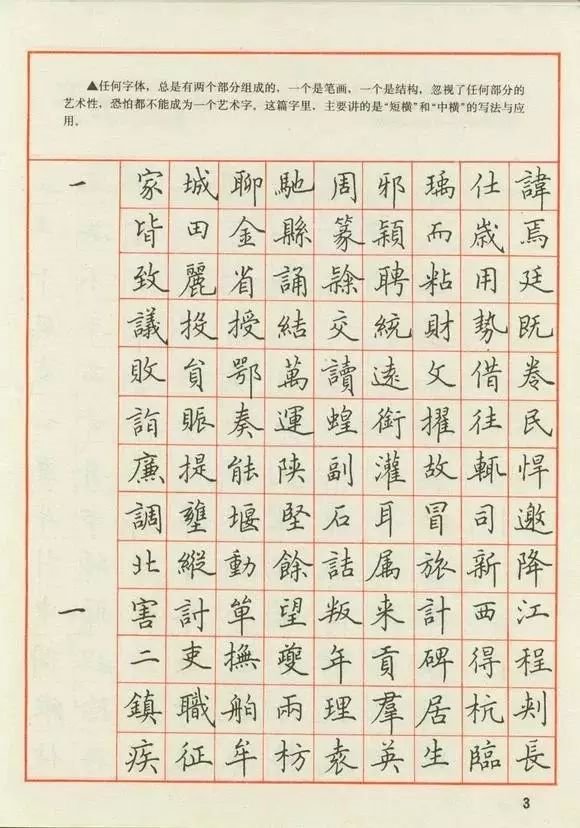 ▲任何字体，总是有两个部分组成的，一个是笔画，一个是结构，忽视了任何部分的
艺术性，恐怕都不能成为一个艺术字，这篇字里，主要讲的是“短横”和“中横”的写法与应
用。
一 家 城 聊 馳 周 邪 瑀 仕 諱
皆 田 金 縣 篆 穎 而 歲 焉
致 麗 省 誦 聘 粘 用 廷
議 投 授 結 交 統 財 勢 既
敗 貟 鄂 萬 讀 遠 文 借 卷
詣 賑 奏 運 蝗 銜 擢 往 民
廉 提 能 陝 副 灌 故 輒 悍
調 壅 堰 堅 石 耳 冒 司 邀
北 縱 動 餘 詁 属 旅 新 降
一 害 討 單 望 叛 来 計 西 江
二 吏 撫 夔 年 貢 碑 得 程
鎮 職 舶 兩 理 羣 居 杭
疾 征 牟 枋 袁 英 生 臨 長
3